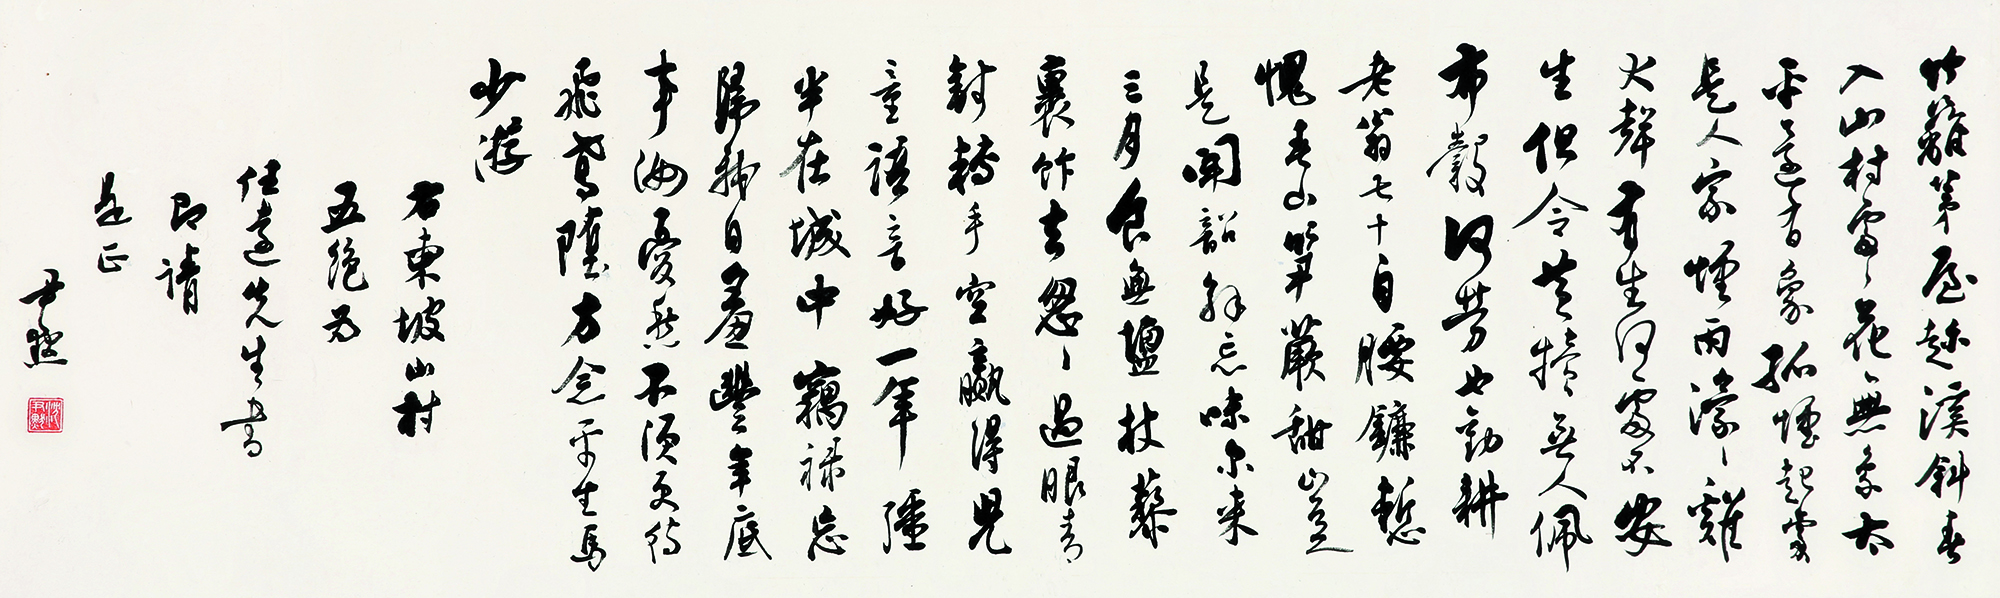 竹籬茅屋趁溪斜春
入山村處〻花無象太
平還有象孤煙起處
是人家煙雨濛〻雞
犬聲有生何處不安
生但令黃犢無人佩
布穀何勞也勸耕
老翁七十自腰鐮慙
愧春山筍蕨甜豈
是聞韶解忘味尔来
三月食無鹽杖藜
裹飯去怱〻過眼青
錢轉手空贏得兒
童語音好一年彊
半在城中竊祿忘
歸我自羞豐年底
事汝憂愁不須更待
飛鳶墮方念平生馬
少游
右東坡山村
五絕為
任遠先生書
即請
是正
尹默